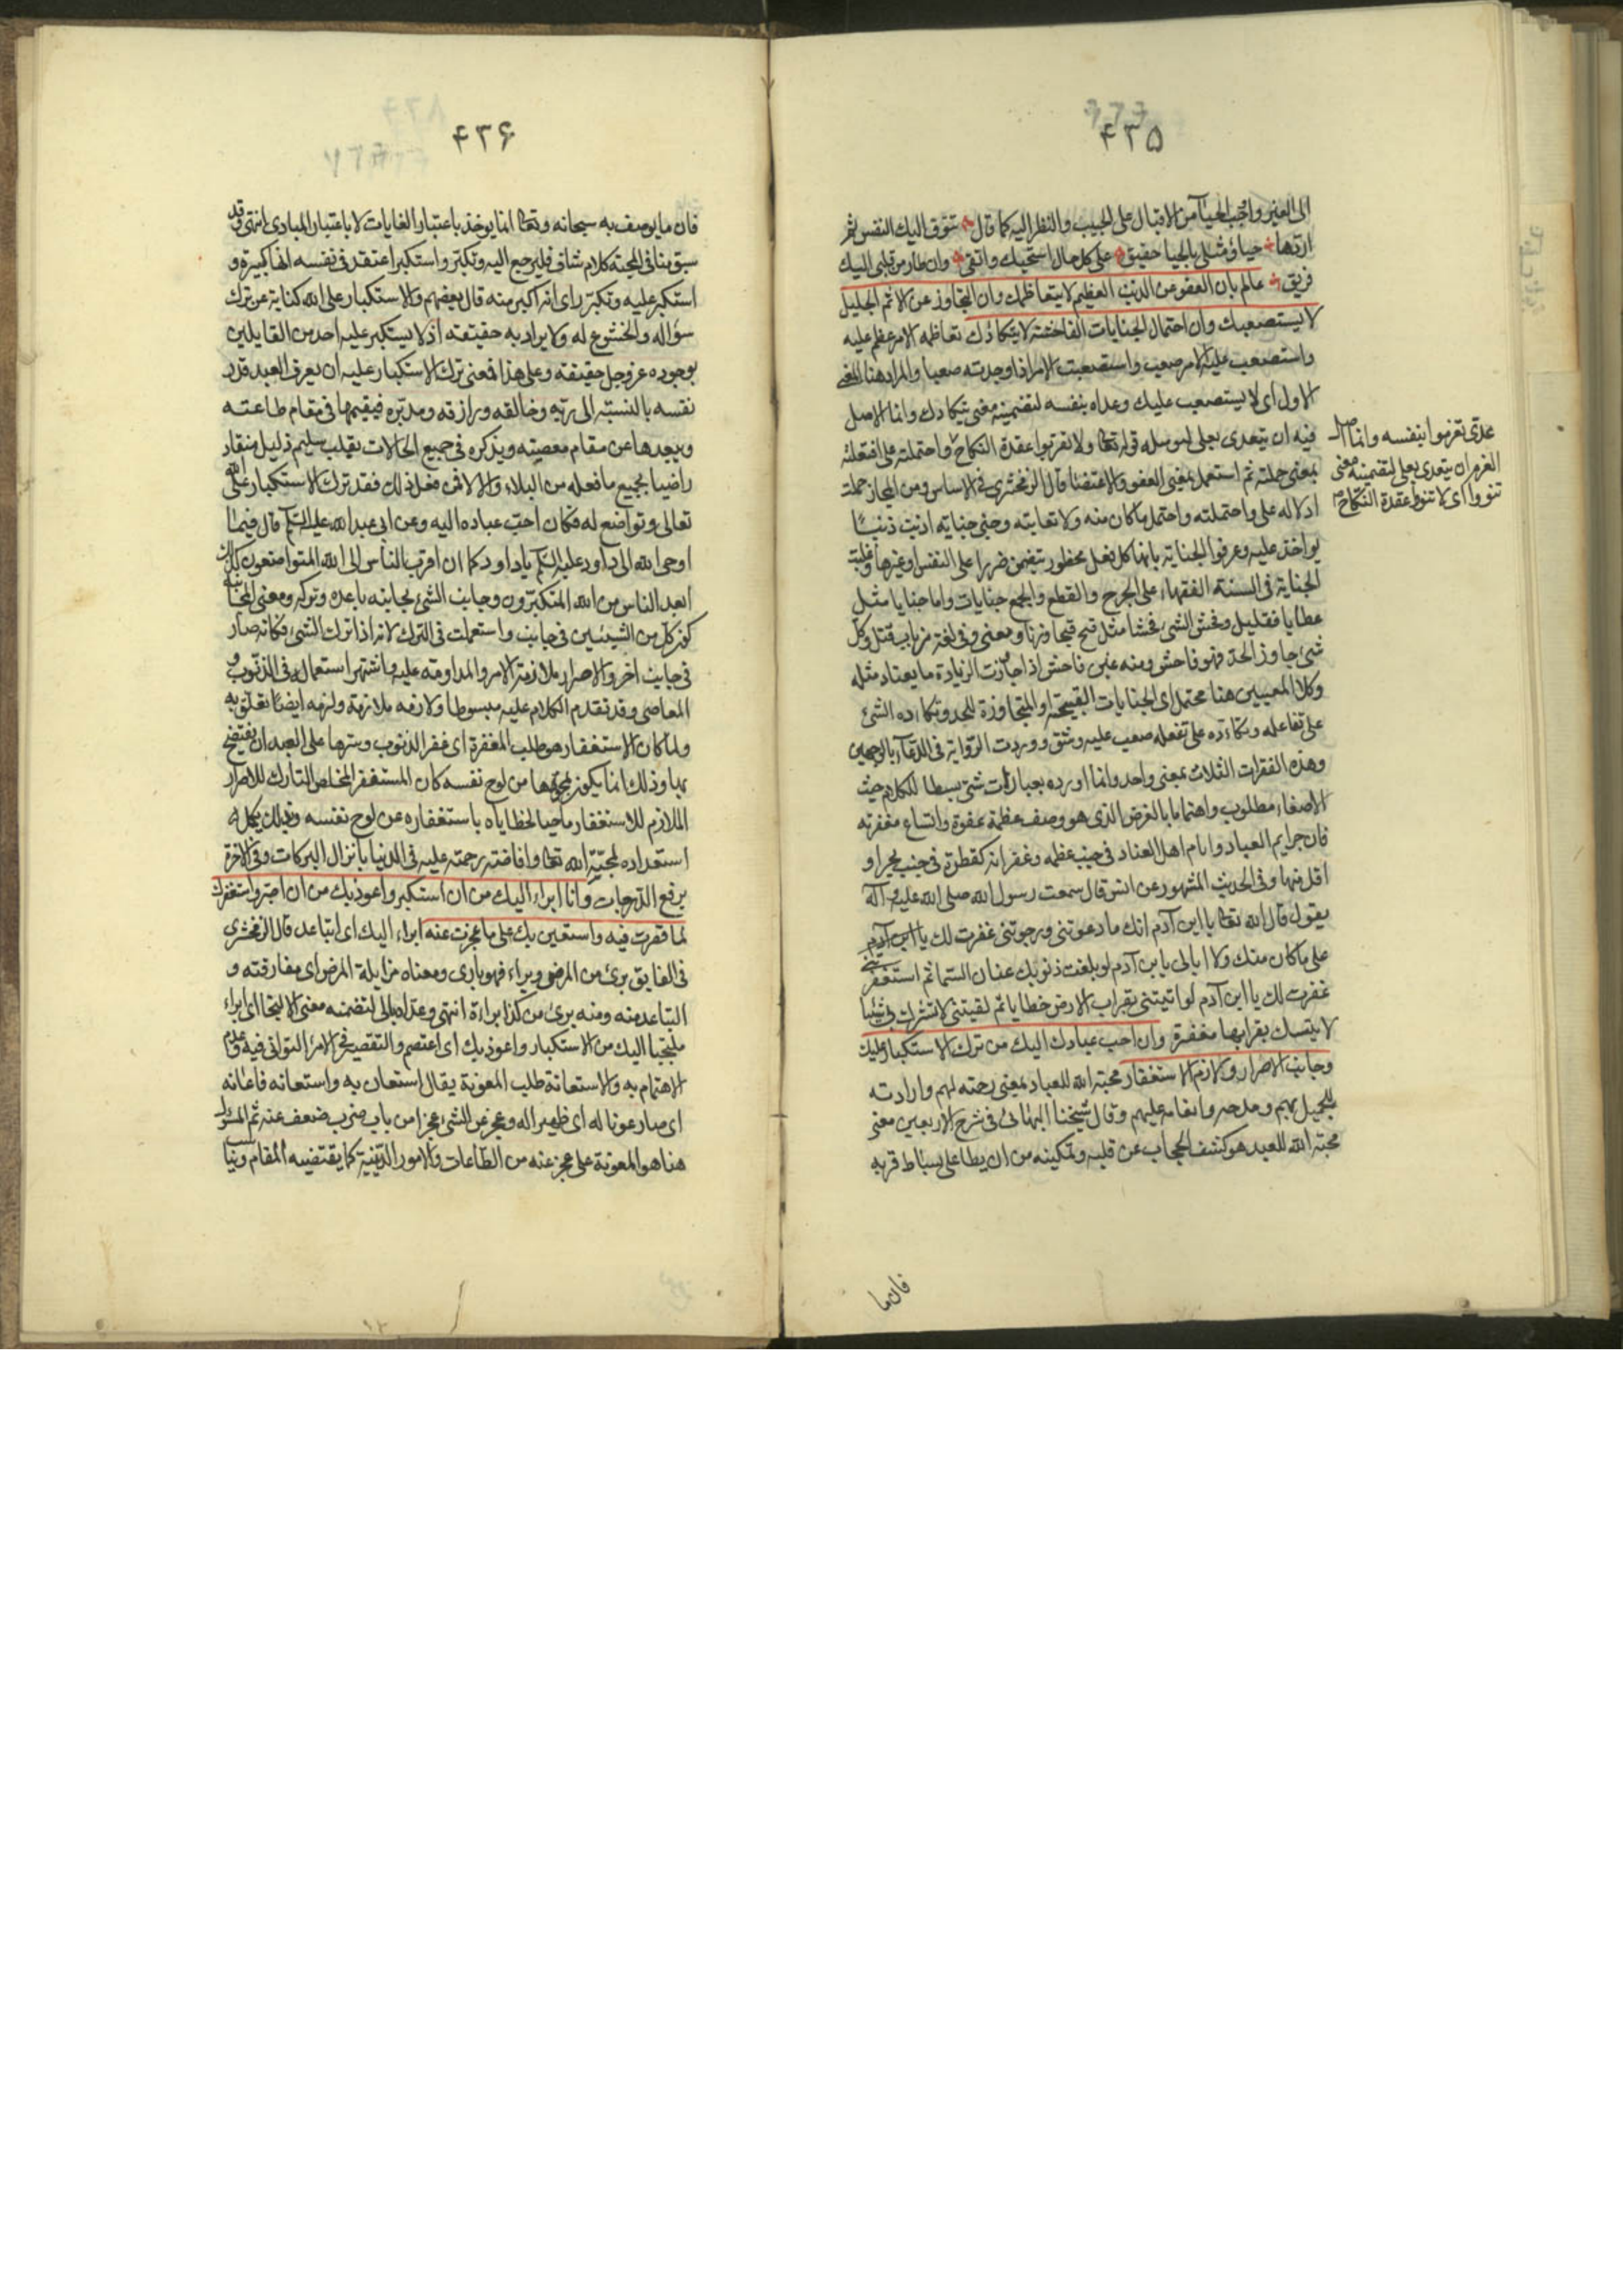 ۴۳۵
الى العين واوجب الحياء من الاقبال على الحبيب والنظر اليه كما قال تتوق اليك النفس ثم
اردها حياء ومثلى بالحياء حقيق على كل حال استحييك واتقى وان طار من قلبى اليك
فريق عالم بان العفو عن الذنب العظيم لا يتعاظمك وان التجاوز عن الاثم الجليل
لا يستصعبك وان احتمال الجنايات الفاحشة لا يتكادك تعاظمه الامر عظم عليه
واستصعب عليه الامر صعب واستصعبت الامر اذا وجدته صعبا والمراد هنا المعنى
الاول اى لا يستصعب عليك وعداه بنفسه لتضمينه معنى يتكادك وانما الاصل
فيه ان يتعدى بعلى قوله تعا ولا تعزموا عقدة النكاح واحتملته على افتعلته
بمعنى حملته ثم استعمل بمعنى العفو والاغضاء قال الزمخشرى فى الاساس ومن المجاز حملت
ادلاله على واحتملته واحتمل ما كان منه ولا تعاتبه وجنى جناية اذنب ذنبا
يواخذ عليه وعرفوا الجناية بانها كل فعل محظور يتضمن ضررا على النفس او غيرها وغلبت
الجناية فى السنة الفقهاء على الجرح والقطع والجمع جنايات واما جنايا مثل
عطايا فقليل وفحش الشئ فحشا مثل قبح قبحا وزنا ومعنى وفى لغة من باب قتل وكل
شئ جاوز الحد فهو فاحش ومنه غبن فاحش اذا جاوزت الزيادة ما يعتاد مثله
وكلا المعنيين هنا محتمل اى الجنايات القبيحة او المتجاوزة للحد وتكاده الشئ
على تفاعله وتكاءده على تفعله صعب عليه وشق ووردت الرواية فى الدعاء بالوجهين
وهذه الفقرات الثلاث بمعنى واحد وانما اورده بعبارات شتى بسطا للكلام حيث
الاصغاء مطلوب واهتماما بالغرض الذى هو وصف عظمة عفوه واتساع مغفرته
فان جرايم العباد واثام اهل العناد فى جنب عظمه وغفرانه كقطرة فى جنب بحر او
اقل منها وفى الحديث المشهور عن انس قال سمعت رسول الله صلى الله عليه وآله
يقول قال الله تعا يا ابن آدم انك ما دعوتنى ورجوتنى غفرت لك يا ابن آدم
على ما كان منك ولا ابالى يا بن آدم لو بلغت ذنوبك عنان السماء ثم استغفرتنى
غفرت لك يا ابن آدم لو اتيتنى بقراب الارض خطايا ثم لقيتنى لا تشرك بى شيئا
لاتيتك بقرابها مغفرة وان احب عبادك اليك من ترك الاستكبار عليك
وجانب الاصرار ولازم الاستغفار محبة الله للعباد بمعنى رحمته لهم وارادته
للجميل بهم ومدحه وانعامه عليهم وقال شيخنا البهائى فى شرح الاربعين معنى
محبة الله للعبد هو كشف الحجاب عن قلبه وتمكينه من ان يطا على بساط قربه
فان ما
عدى تعزموا بنفسه وانما اصل
العزم ان يتعدى بعلى لتضمينه معنى
تنووا اى لا تنووا عقدة النكاح
۴۳۶
فان ما يوصف به سبحانه وتعا انما يوخذ باعتبار الغايات لا باعتبار المبادى انتهى وقد
سبق منا فى المحبة كلام شاف فليرجع اليه وتكبر واستكبر اعتقد فى نفسه انها كبيرة و
استكبر عليه وتكبر راى انه اكبر منه قال بعضهم والاستكبار على الله كناية عن ترك
سؤاله والخشوع له ولا يراد به حقيقته اذ لا يستكبر عليه احد من القايلين
بوجوده عز وجل حقيقة وعلى هذا فمعنى ترك الاستكبار عليه ان يعرف العبد قدر
نفسه بالنسبة الى ربه وخالقه ورازقه ومدبره فيقيمها فى مقام طاعته
ويبعدها عن مقام معصيته ويذكره فى جميع الحالات بقلب سليم ذليل منقاد
راضيا بجميع ما فعله من البلاء والالاء فمن فعل ذلك فقد ترك الاستكبار على الله
تعالى وتواضع له فكان احب عباده اليه وعن ابى عبد الله عليه السلام قال فيما
اوحى الله الى داود عليه السلام يا داود كما ان اقرب الناس الى الله المتواضعون كذلك
ابعد الناس من الله المتكبرون وجانب الشئ مجانبة باعده وتركه ومعنى المجانبة
كون كل من الشيئين فى جانب واستعملت فى الترك لانه اذا ترك الشئ فكانه صار
فى جانب اخر والاصرار ملازمة الامر والمداومة عليه واشتهر استعماله فى الذنوب و
المعاصى وقد تقدم الكلام عليه مبسوطا ولازمه ملازمة ولزمه ايضا تعلق به
ولما كان الاستغفار هو طلب المغفرة اى غفر الذنوب وسترها على العبد ان يفتضح
بها وذلك انما يكون بمحوها من لوح نفسه كان المستغفر المخلص التارك للاصرار
الملازم للاستغفار ماحيا لخطاياه باستغفاره عن لوح نفسه وبذلك يكمل
استعداده لمحبة الله تعا وافاضته رحمته عليه فى الدنيا بانزال البركات وفى الاخرة
برفع الدرجات وانا ابراء اليك من ان استكبر واعوذ بك من ان اصر واستغفرك
لما قصرت فيه واستعين بك على ما عجزت عنه ابراء اليك اى اتباعد قال الزمخشرى
فى الفايق برئ من المرض وبراء فهو بارى ومعناه مزايلة المرض اى مفارقته و
التباعد منه ومنه برئ من كذا براءة انتهى وعداه بالى لتضمنه معنى الالتجاء اى ابراء
ملتجيا اليك من الاستكبار واعوذ بك اى اعتصم والتقصير فى الامر التوانى فيه وعدم
الاهتمام به والاستعانة طلب المعونة يقال استعان به واستعانه فاعانه
اى صار عونا له اى ظهيرا له وعجز عن الشئ عجزا من باب ضرب ضعف عنه ثم المسئول
هنا هو المعونة على عجز عنه من الطاعات والامور الدينية كما يقتضيه المقام